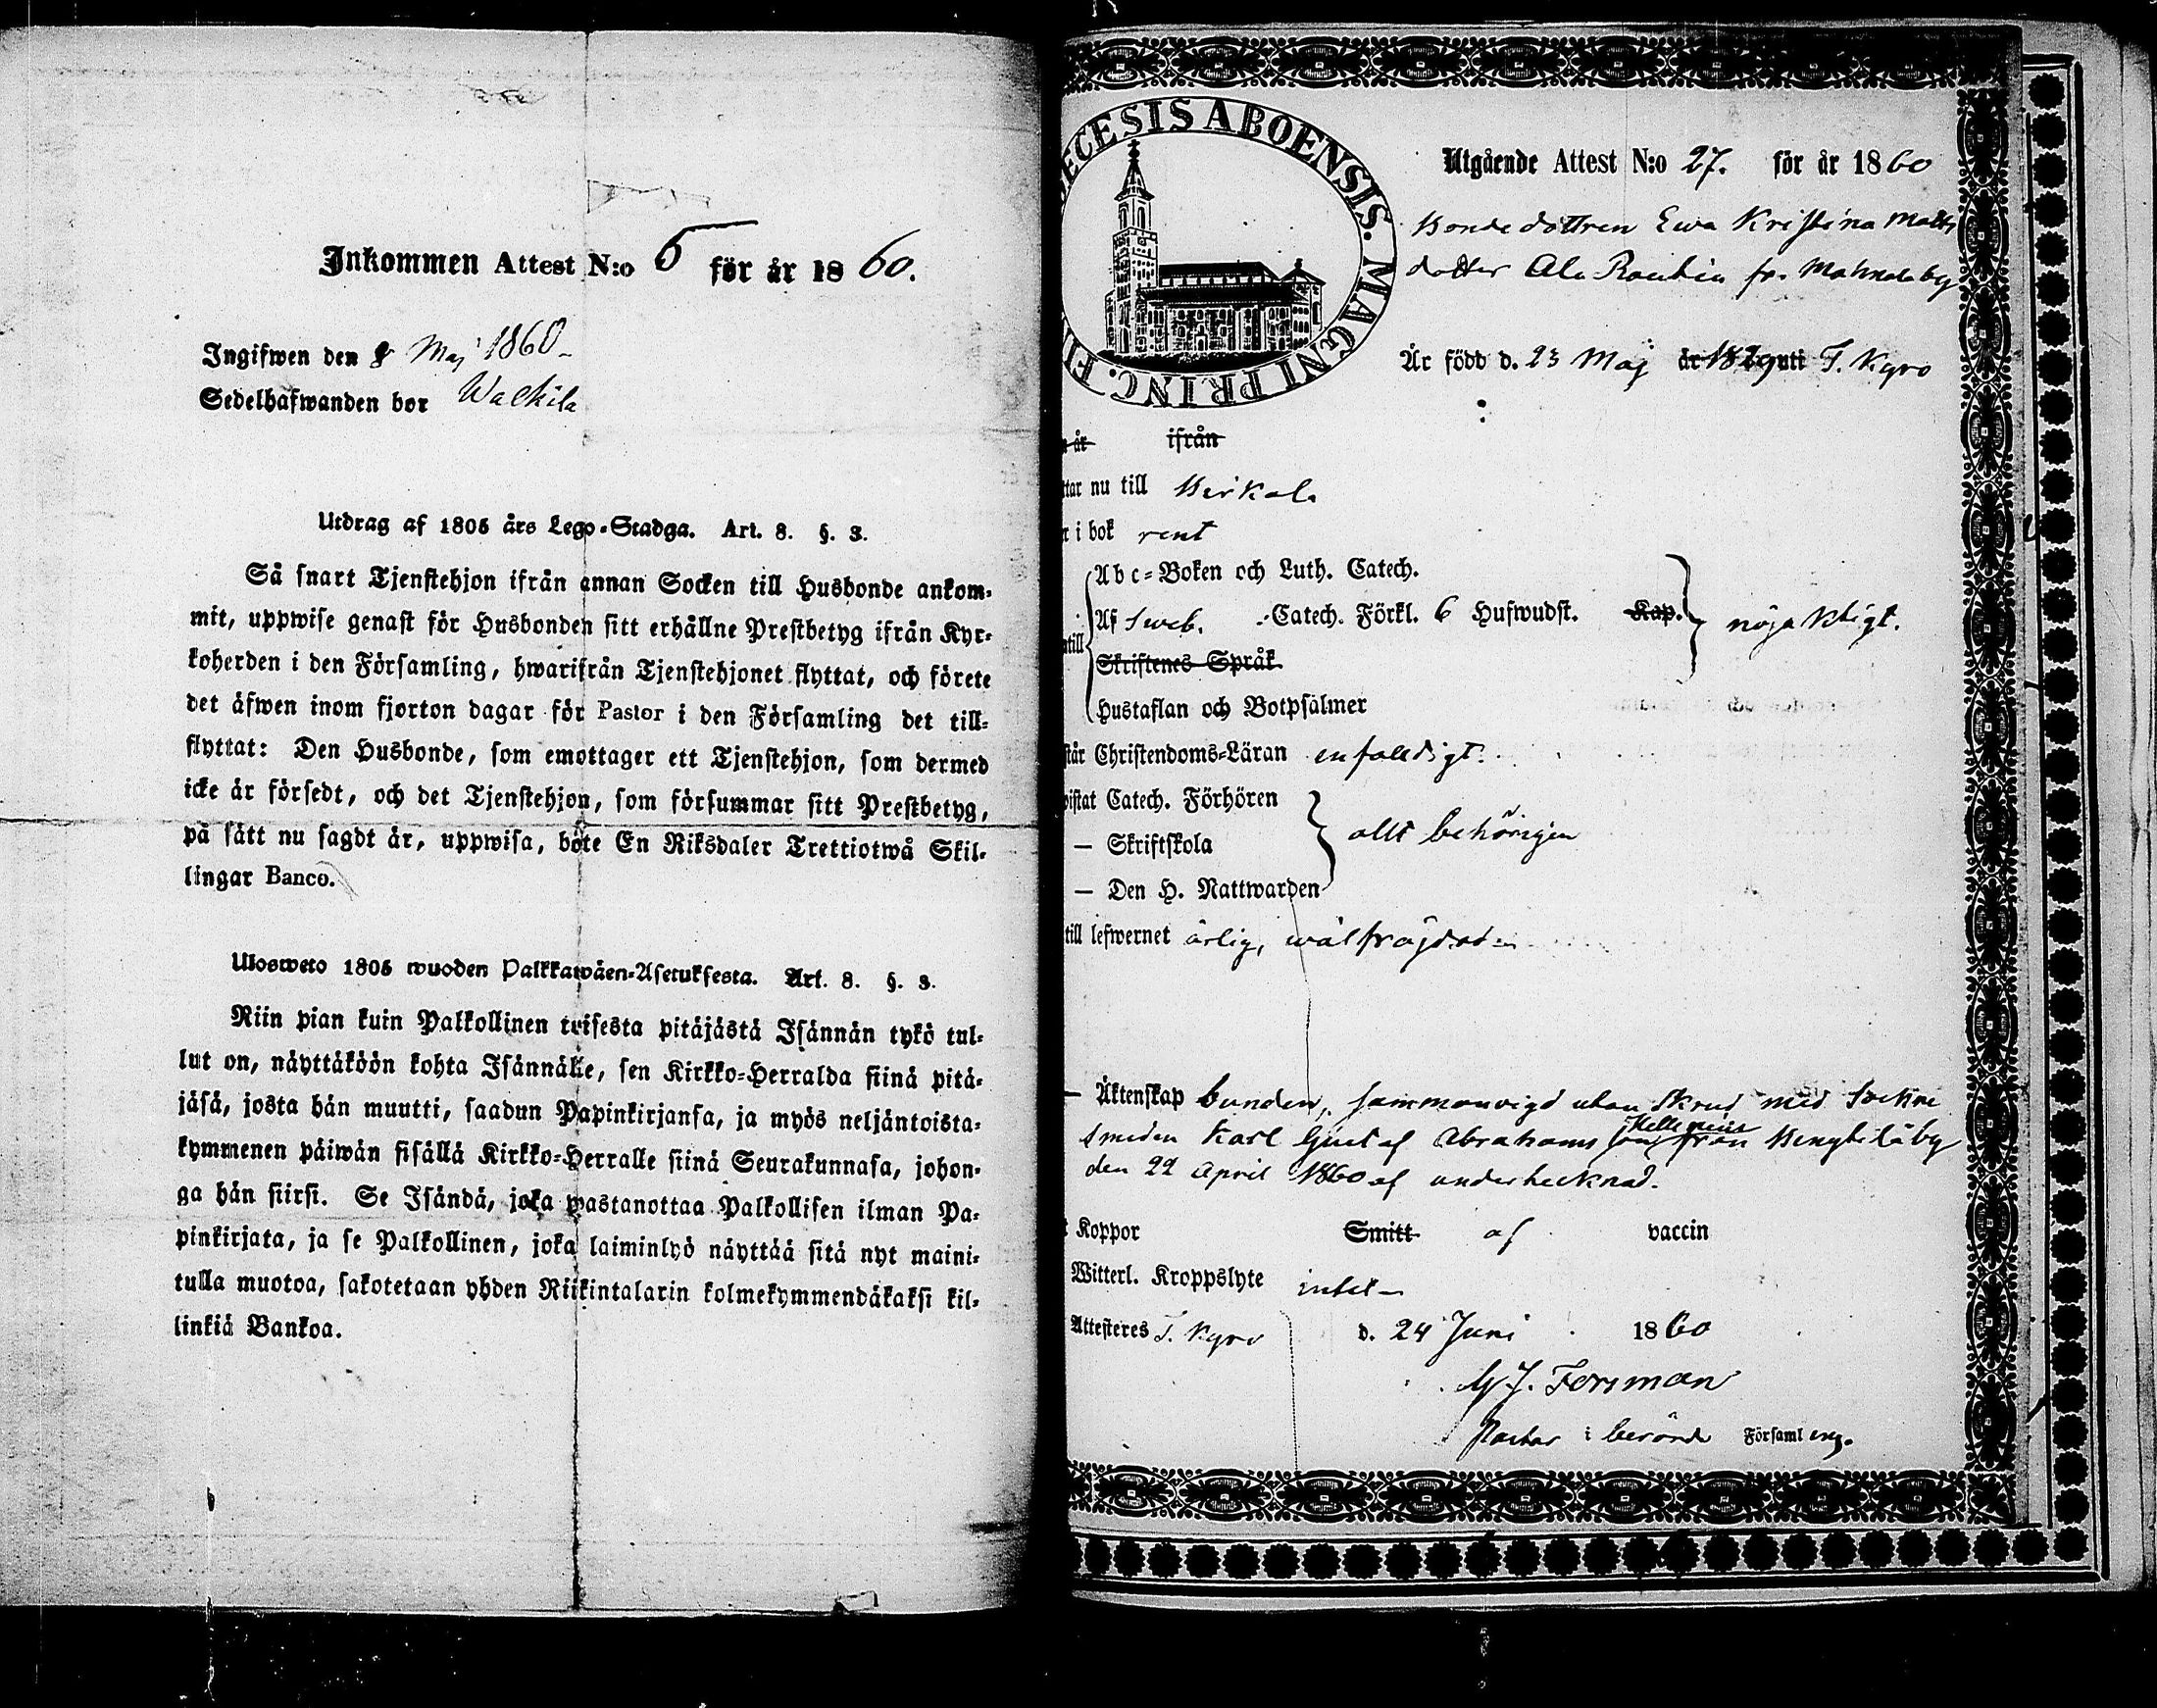 Inkommen Attest N:o 6 för år 1860.
Ingifwen den 8 Maj 1860
Sedelhafwanden bor Walkila
Utdrag af 1805 års Lego-Stadga. Art. 8. §. 3.
Så snart Tjenstehjon ifrån annan Socken till Husbonde ankom-
mit, uppwise genast för Husbonden sitt erhållne Prestbetyg ifrån Kyr-
koherden i den Församling, hwarifrån Tjenstehjonet flyttat, och förete
det äfwen inom fjorton dagar för Pastor i den Församling det till-
flyttat: Den Husbonde, som emottager ett Tjenstehjon, som dermed
icke är försedt, och det Tjenstehjon, som försummar sitt Prestbetyg,
på sätt nu sagdt är, uppwisa, böte En Riksdaler Trettiotwå Skil-
lingar Banco.
Ulosweto 1805 wuoden Palkkawäen-Asetuksesta. Art. 8. §. 3.
Niin pian kuin Palkollinen toisesta pitäjästä Isännän tykö tul-
lut on, näyttäköön kohta Isännälle, sen Kirkko-Herralda siinä pitä-
jäsä, josta hän muutti, saadun Papinkirjansa, ja myös neljäntoista-
kymmenen päiwän sisällä Kirkko-Herralle siinä Seurakunnasa, johon-
ga hän siirsi. Se Isändä, joka wastanottaa Palkollisen ilman Pa-
pinkirjata, ja se Palkollinen, joka laiminlyö näyttää sitä nyt maini-
tulla muotoa, sakotetaan yhden Riikintalarin kolmekymmendäkaksi kil-
linkiä Bankoa.
ECESIS ABOENSIS. MAGNI PRINC. F
Utgående Attest N:o 27. för år 1860
Bondedottren Ewa Kristina Matts
dotter Ala Rautiu fr. Mahnala by
Är född d. 23 Maj år 1829 uti T. Kyro
år ifrån
tar nu till Birkala
r i bok rent
Abc-Boken och Luth. Catech.
Af Sweb. Catech. Förkl. 6 Hufwudst. Kap. nöjaktigt.
till
Skriftenes Språk
Hustaflan och Botpsalmer
står Christendoms-Läran enfaldigt.
pistat Catech. Förhören
— Skriftskola allt behörigen
— Den H. Nattwarden
till lefwernet ärlig, wälfräjdad
— Äktenskap bunden, sammanvigd utan skrud med Sockne
smeden Karl Gustaf Abrahamsson Hellenius från Bengtilä by
den 22 April 1860 af undertecknad.
t Koppor Smitt af vaccin
Witterl. Kroppslyte intet
Attesteres T. Kyro d. 24 Juni 1860
G. J. Forsman
Pastor i berörde Församling.